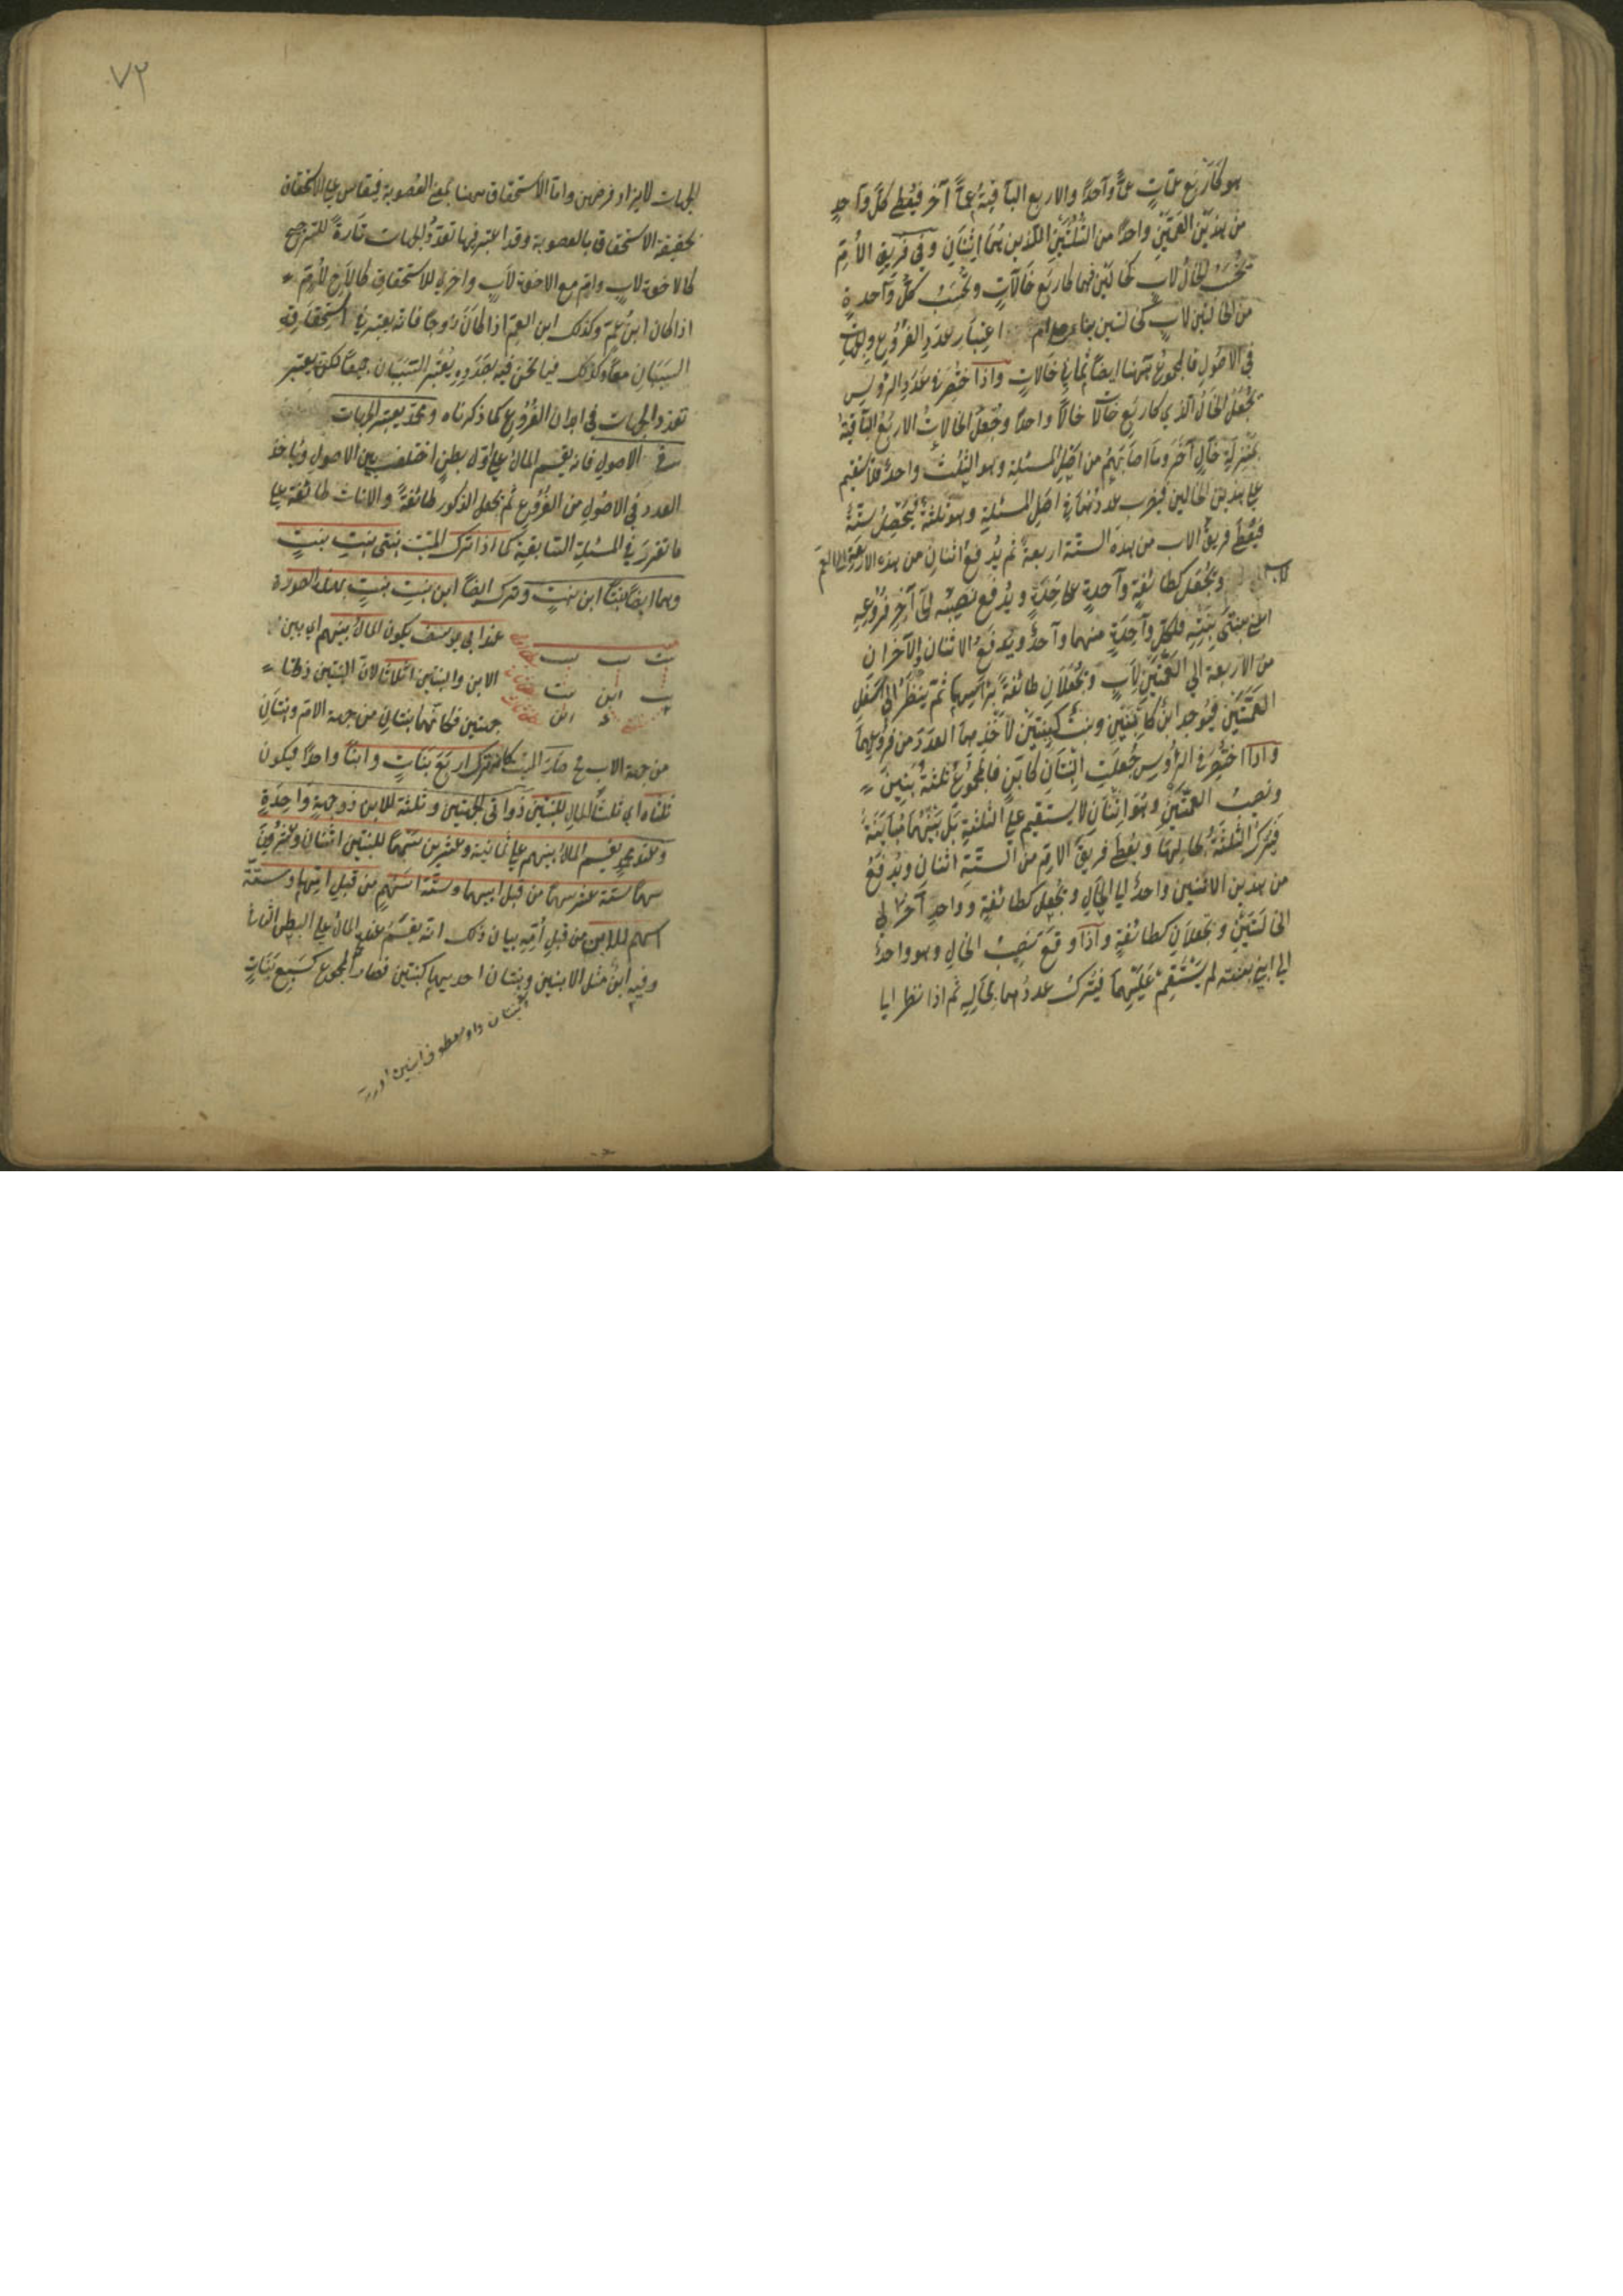 هو كاربع عمات عمًّا واحدًا والاربع الباقية عمًّا آخر فيعطى كل واحد
من هذين العمين واحدًا من الثلثين اللذين هما اثنان وفي فريق الأم
يحسب الخال لاب كخالين فهما كاربع خالات ويحسب كل واحدة
من الخالتين لاب كخالتين بناء على اعتبار عدد الفروع والجهات
في الاصول فالمجموع ههنا ايضا ثماني خالات واذا اختصر في عدد الرؤس
يجعل الخال الذي كاربع خالات خالًا واحدًا وجعل الخالات الاربع الباقية
بمنزلة خال آخر وما اصابهم من اصل المسئلة وهو الثلث واحد فلا يستقيم
على هذين الخالين فيضرب عددهما في اصل المسئلة وهو ثلثة فيحصل ستة
فيعطى فريق الاب من هذه الستة اربعة ثم يدفع اثنان من هذه الاربعة الى العم
لاب
ويجعل كطائفة واحدة على حدة ويدفع نصيبه الى آخر فروعه
اعني بنتي بنته فلكل واحدة منهما واحد ويدفع الاثنان الآخران
من الاربعة الى العمتين لاب ويجعلان طائفة برأسها ثم ينظر الى اسفل
العمتين فيوجد ابن كابنين وبنت كبنتين لاخذهما العدد من فروعهما
واذا اختصر في الرؤس جعلت البنتان كابن فالمجموع ثلثة بنين
ونصيب العمتين وهو اثنان لا يستقيم على الثلثة بل بينهما مباينة
فيترك الثلثة بحالها ويعطى فريق الام من الستة اثنان ويدفع
من هذين الاثنين واحد الى الخال ويجعل كطائفة وواحد آخر الى
الخالتين وتجعلان كطائفة واذا وقع نصيب الخال وهو واحد
الى ابني بنته لم يستقم عليهما فيترك عددهما بحاله ثم اذا نظر الى
٧٢
الجهات لا يزاد فرضهن واما الاستحقاق ههنا بمعنى العصوبة فيقاس على الاستحقاق
بحقيقة الاستحقاق بالعصوبة وقد اعتبر فيها تعدد الجهات تارة للترجيح
كالاخوة لاب وام مع الاخوة لاب واخرى للاستحقاق كالاخ لام
اذا كان ابن عم وكذلك ابن العم اذا كان زوجا فانه يعتبر في استحقاقه
السببان معا وكذلك فيما نحن فيه بصدده يعتبر السببان جميعًا لكن يعتبر
تعدد الجهات في ابدان الفروع كما ذكرناه ومحمد يعتبر الجهات
في الاصول فانه يقسم المال على اول بطن اختلف بين الاصول ويأخذ
العدد في الاصول من الفروع ثم يجعل الذكور طائفة والاناث طائفة على
ما تقرر في المسئلة السابقة كما اذا ترك الميت بنتي بنت بنت
وهما ايضًا بنتا ابن بنت وترك ايضًا ابن بنت بنت بهذه الصورة
عند ابي يوسف يكون المال بينهم اي بين
بنت بنت بنت
الابن والبنتين اثلاثا لان البنتين ذواتا
بنت ابن بنت
جهتين فكانهما بنتان من جهة الام وبنتان
من جهة الاب فح صار الميت كانه ترك اربع بنات وابنًا واحدًا فيكون
ثلثاه اي ثلثا المال للبنتين ذواتي الجهتين وثلثه للابن ذو جهة واحدة
وعند محمد يقسم المال بينهم على ثمانية وعشرين سهمًا للبنتين اثنان وعشرون
سهمًا ستة عشر سهمًا من قبل ابيهما وستة اسهم من قبل امهما وستة
اسهم للابن من قبل امه بيان ذلك انه يقسم عنده المال على البطن الثاني
وفيه ابن مثل الابنين وبنتان احديهما كبنتين فصار المجموع كسبع بنات